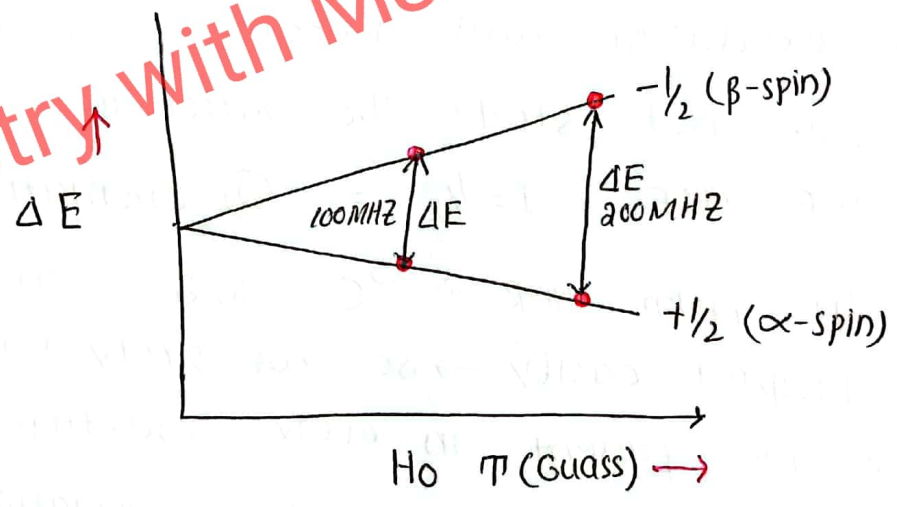 try with Mo
-1/2 (β-spin)
ΔE
100MHZ ΔE
ΔE
200MHZ
+1/2 (α-spin)
Ho T (Guass)